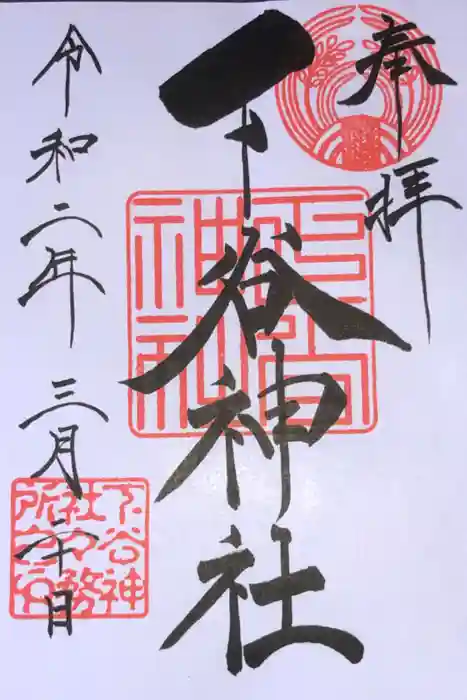 奉拝
下谷神社
令和二年 三月二十日
下谷神社社務所之印